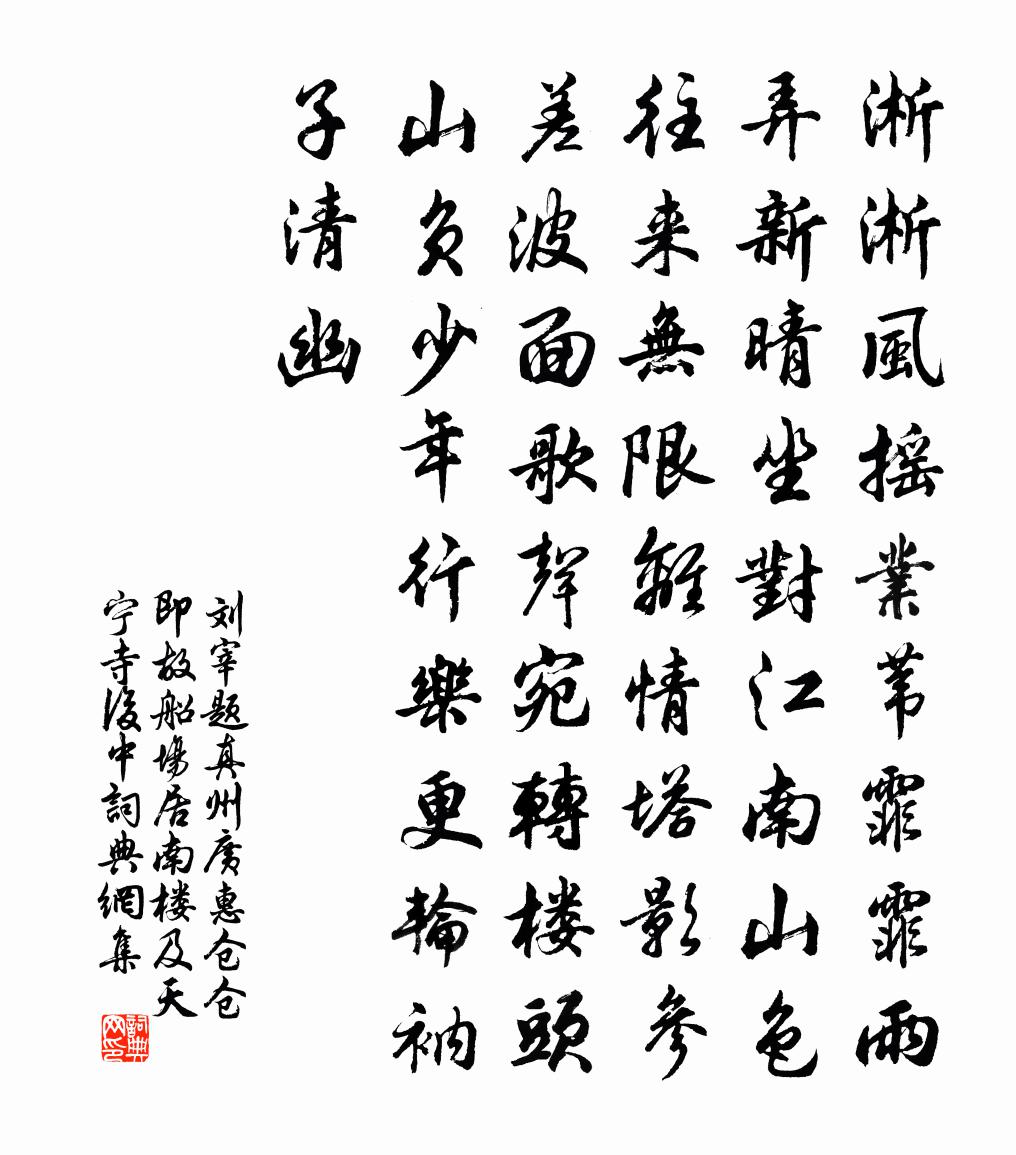 淅淅風搖業苇霏霏雨
弄新晴坐對江南山色
往来無限離情塔影參
差波面歌聲宛轉楼頭
山負少年行樂更輪衲
子清幽
刘宰题真州廣惠仓仓
即故船場居南楼及天
宁寺後中詞典網集
詞典网印